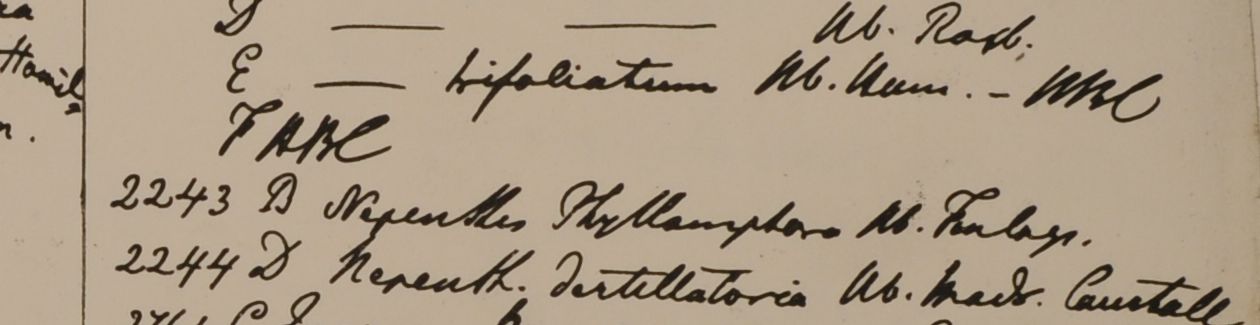 D — — Hb. Roxb.
E — trifoliatum Hb. Ham. - HBC
F HBC
2243 B Nepenthes Phyllamphora Hb. Finlays.
2244 D Nepenth. destillatoria Hb. Madr.
Hamil